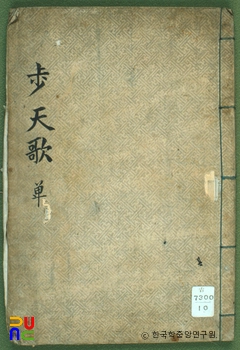 步天歌
單
7200
10
© 한국학중앙연구원